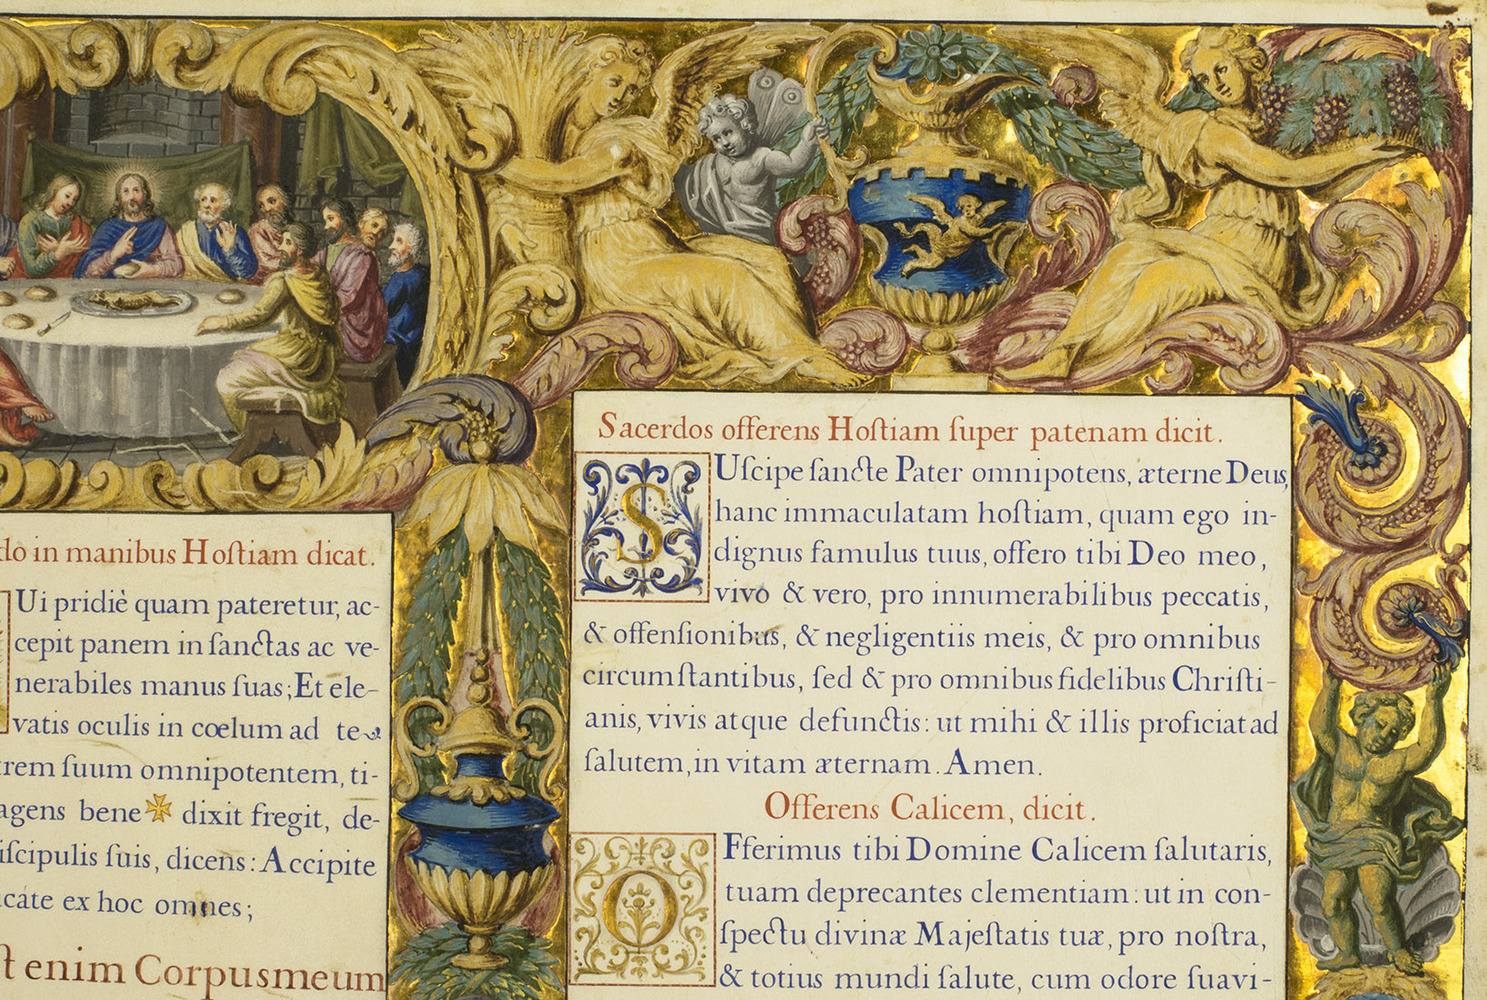 do in manibus Hoſtiam dicat.
Ui pridiè quam pateretur, ac-
cepit panem in ſanctas ac ve-
nerabiles manus ſuas; Et ele-
vatis oculis in cœlum ad te
trem ſuum omnipotentem, ti-
agens bene ✠ dixit fregit, de-
iſcipulis ſuis, dicens: Accipite
cate ex hoc omnes;
ſt enim Corpus meum
Sacerdos offerens Hoſtiam ſuper patenam dicit.
SUſcipe ſancte Pater omnipotens, æterne Deus,
hanc immaculatam hoſtiam, quam ego in-
dignus famulus tuus, offero tibi Deo meo,
vivo & vero, pro innumerabilibus peccatis,
& offenſionibus, & negligentiis meis, & pro omnibus
circumſtantibus, ſed & pro omnibus fidelibus Chriſti-
anis, vivis atque defunctis: ut mihi & illis proficiat ad
ſalutem, in vitam æternam. Amen.
Offerens Calicem, dicit.
OFferimus tibi Domine Calicem ſalutaris,
tuam deprecantes clementiam: ut in con-
ſpectu divinæ Majeſtatis tuæ, pro noſtra,
& totius mundi ſalute, cum odore ſuavi-